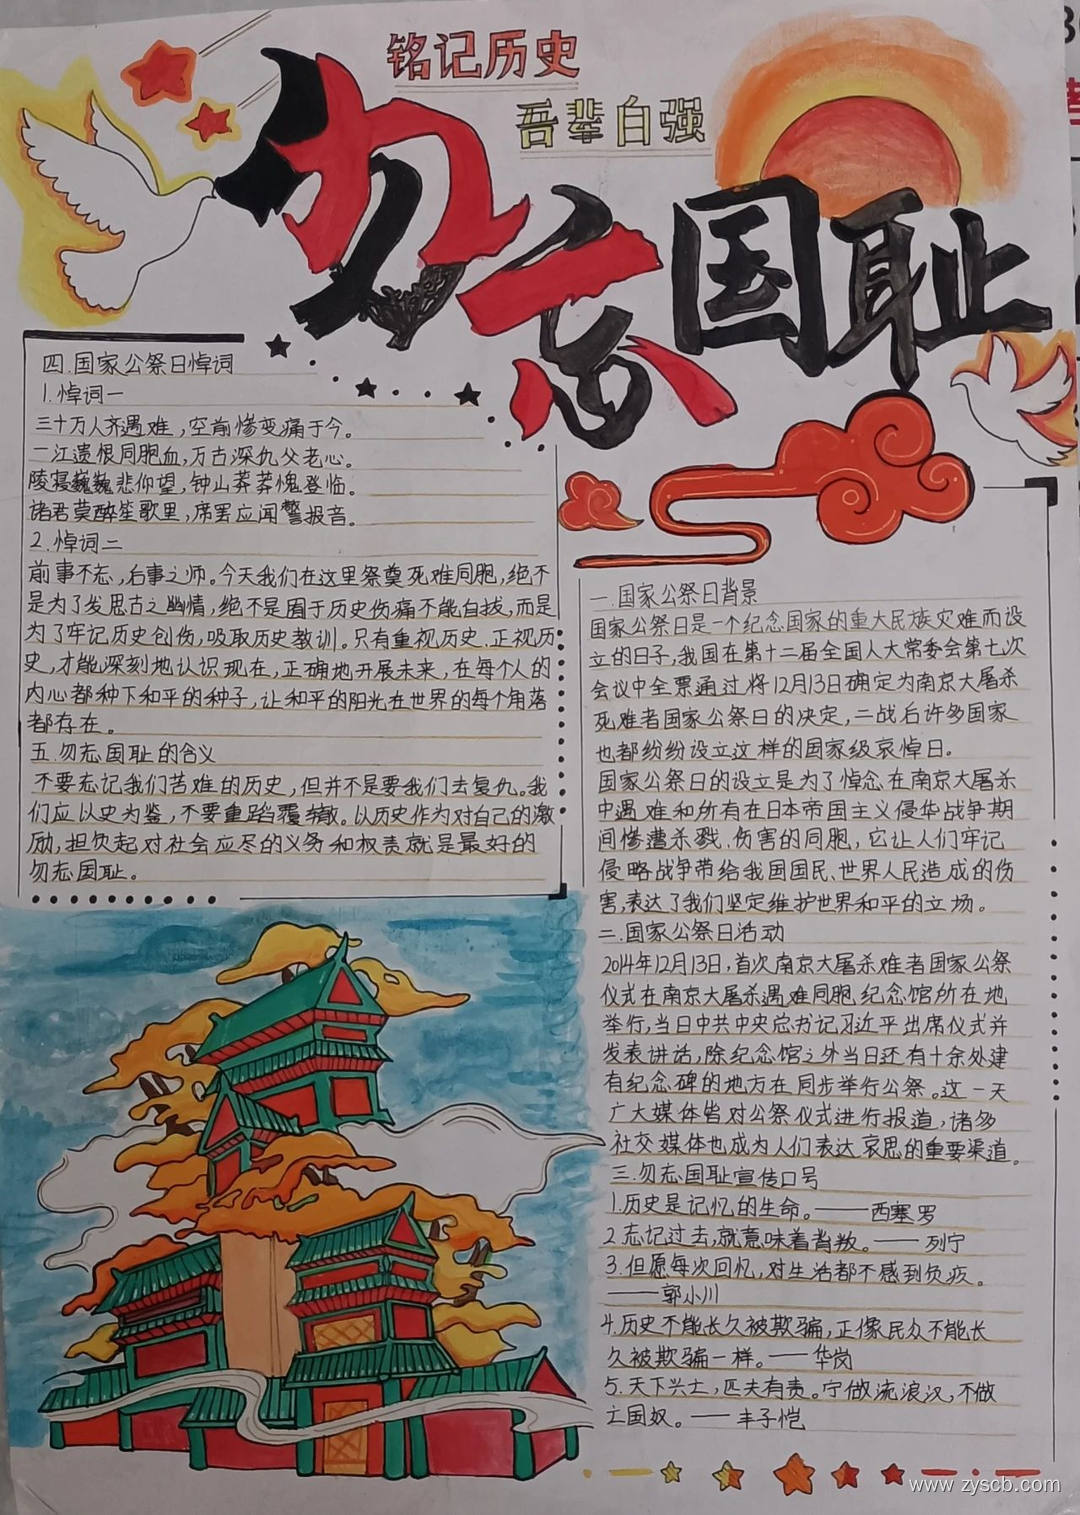 铭记历史
吾辈自强
勿忘国耻
四.国家公祭日悼词
1.悼词一
三十万人齐遇难,空前惨变痛于今。
一江遗恨同胞血,万古深仇父老心。
陵寝巍巍悲仰望,钟山莽莽愧登临。
诸君莫醉笙歌里,席罢应闻警报音。
2.悼词二
前事不忘,后事之师。今天我们在这里祭奠死难同胞,绝不
是为了发思古之幽情,绝不是囿于历史伤痛不能自拔,而是
为了牢记历史创伤,吸取历史教训。只有重视历史.正视历
史,才能深刻地认识现在,正确地开展未来,在每个人的
内心都种下和平的种子,让和平的阳光在世界的每个角落
都存在。
五.勿忘国耻的含义
不要忘记我们苦难的历史,但并不是要我们去复仇。我
们应以史为鉴,不要重蹈覆辙。以历史作为对自己的激
励,担负起对社会应尽的义务和权责就是最好的
勿忘国耻。
一.国家公祭日背景
国家公祭日是一个纪念国家的重大民族灾难而设
立的日子,我国在第十二届全国人大常委会第七次
会议中全票通过将12月13日确定为南京大屠杀
死难者国家公祭日的决定,二战后许多国家
也都纷纷设立这样的国家级哀悼日.
国家公祭日的设立是为了悼念在南京大屠杀
中遇难和所有在日本帝国主义侵华战争期
间惨遭杀戮.伤害的同胞,它让人们牢记
侵略战争带给我国国民、世界人民造成的伤
害,表达了我们坚定维护世界和平的立场。
二.国家公祭日活动
2014年12月13日,首次南京大屠杀难者国家公祭
仪式在南京大屠杀遇难同胞纪念馆所在地
举行,当日中共中央总书记习近平出席仪式并
发表讲话,除纪念馆之外当日还有十余处建
有纪念碑的地方在同步举行公祭。这一天
广大媒体皆对公祭仪式进行报道,诸多
社交媒体也成为人们表达哀思的重要渠道。
三.勿忘国耻宣传口号
1.历史是记忆的生命。——西塞罗
2.忘记过去,就意味着背叛。——列宁
3.但愿每次回忆,对生活都不感到负疚。
——郭小川
4.历史不能长久被欺骗,正像民众不能长
久被欺骗一样。——华岗
5.天下兴亡,匹夫有责。宁做流浪汉,不做
亡国奴。——丰子恺
www.zyscb.com